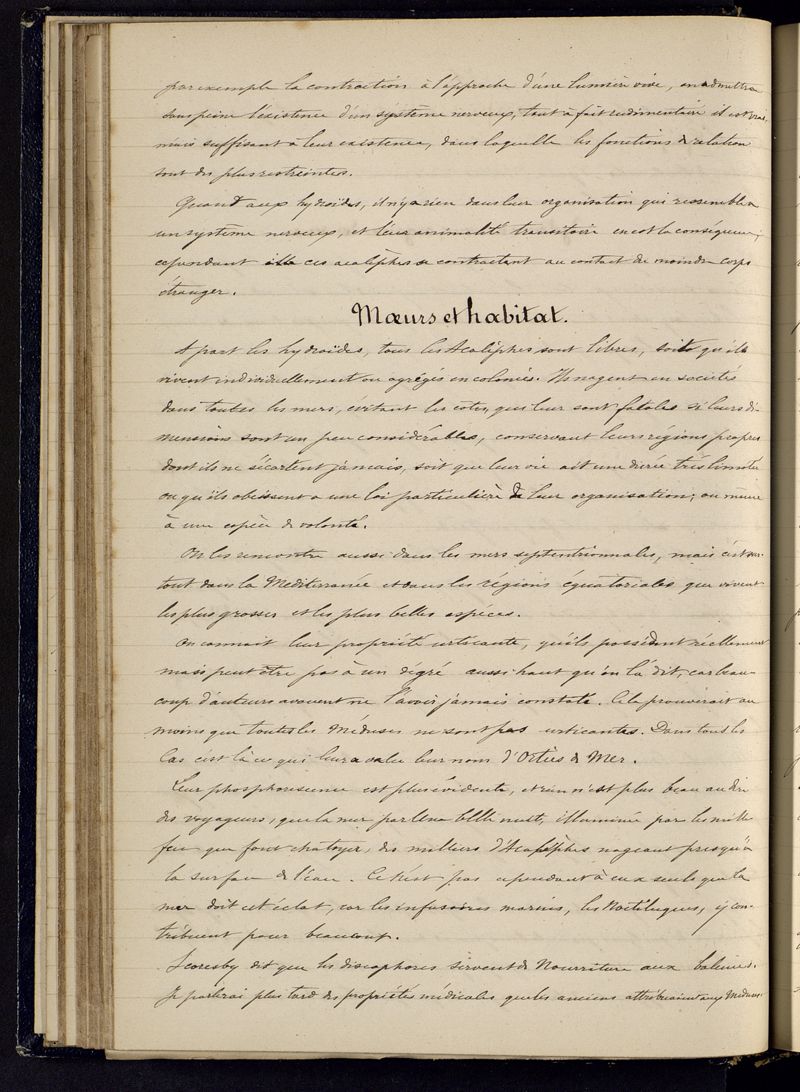 par exemple la contraction à l'approche d'une lumière vive, on admettra
sans peine l'existence d'un système nerveux, tout à fait rudimentaire il est vrai,
mais suffisant à leur existence, dans laquelle les fonctions de relation
sont des plus restreintes.
Quant aux hydroïdes, il n'y a rien dans leur organisation qui ressemble à
un système nerveux, et leur animalité transitoire en est la conséquence;
cependant ces acalèphes se contractent au contact du moindre corps
étranger.
Mœurs et habitat.
A part les hydroïdes, tous les Acalèphes sont libres, soit qu'ils
vivent individuellement ou agrégés en colonies. Ils nagent en sociétés
dans toutes les mers, évitant les côtes, qui leur sont fatales si leurs di-
mensions sont un peu considérables, conservant leurs régions propres
dont ils ne s'écartent jamais, soit que leur vie ait une durée très limitée
ou qu'ils obéissent à une loi particulière de leur organisation, ou même
à une espèce de volonté.
On les rencontre aussi dans les mers septentrionnales, mais c'est sur-
tout dans la Méditerranée et dans les régions équatoriales que vivent
les plus grosses et les plus belles espèces.
On connait leur propriété urticante, qu'ils possèdent réellement
mais peut être pas à un dégré aussi haut qu'on l'a dit, car beau-
coup d'auteurs avouent ne l'avoir jamais constaté. Cela prouverait au
moins que toutes les Méduses ne sont pas urticantes. Dans tous les
Cas c'est là ce qui leur a valu leur nom d'Orties de Mer.
Leur phosphorescence est plus évidente, et rien n'est plus beau au dire
des voyageurs, que la mer par une belle nuit, illuminée par les mille
feux que font chatoyer, des milliers d'Acalèphes nageant presqu'à
la surface de l'eau. Ce n'est pas cependant à eux seuls que la
mer doit cet éclat, car les infusoires marins, les Noctiluques, y con-
tribuent pour beaucoup.
Scoresby dit que les discophores servent de Nourriture aux baleines.
Je parlerai plus tard des propriétés médicales que les anciens attribuaient aux Méduses.